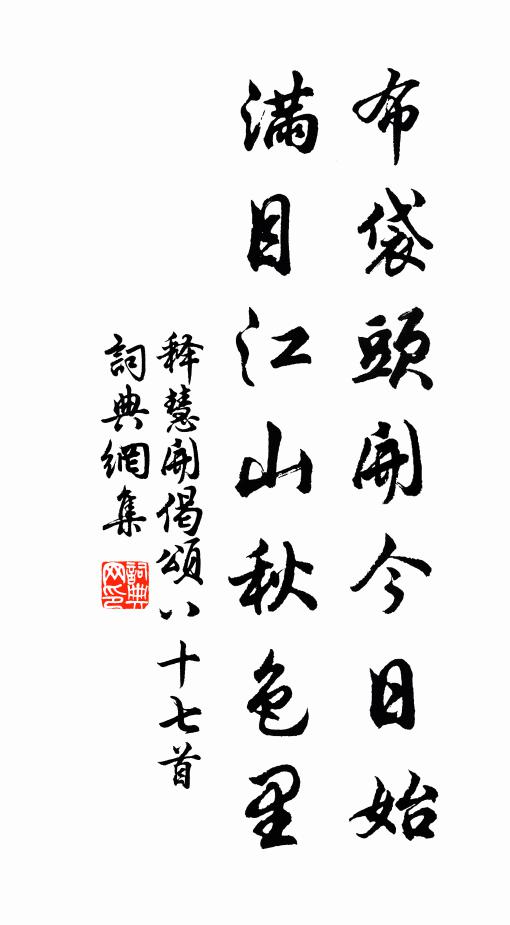 布袋頭開今日始
満目江山秋色里
释慧開偈頌八十七首
詞典網集
詞典网印